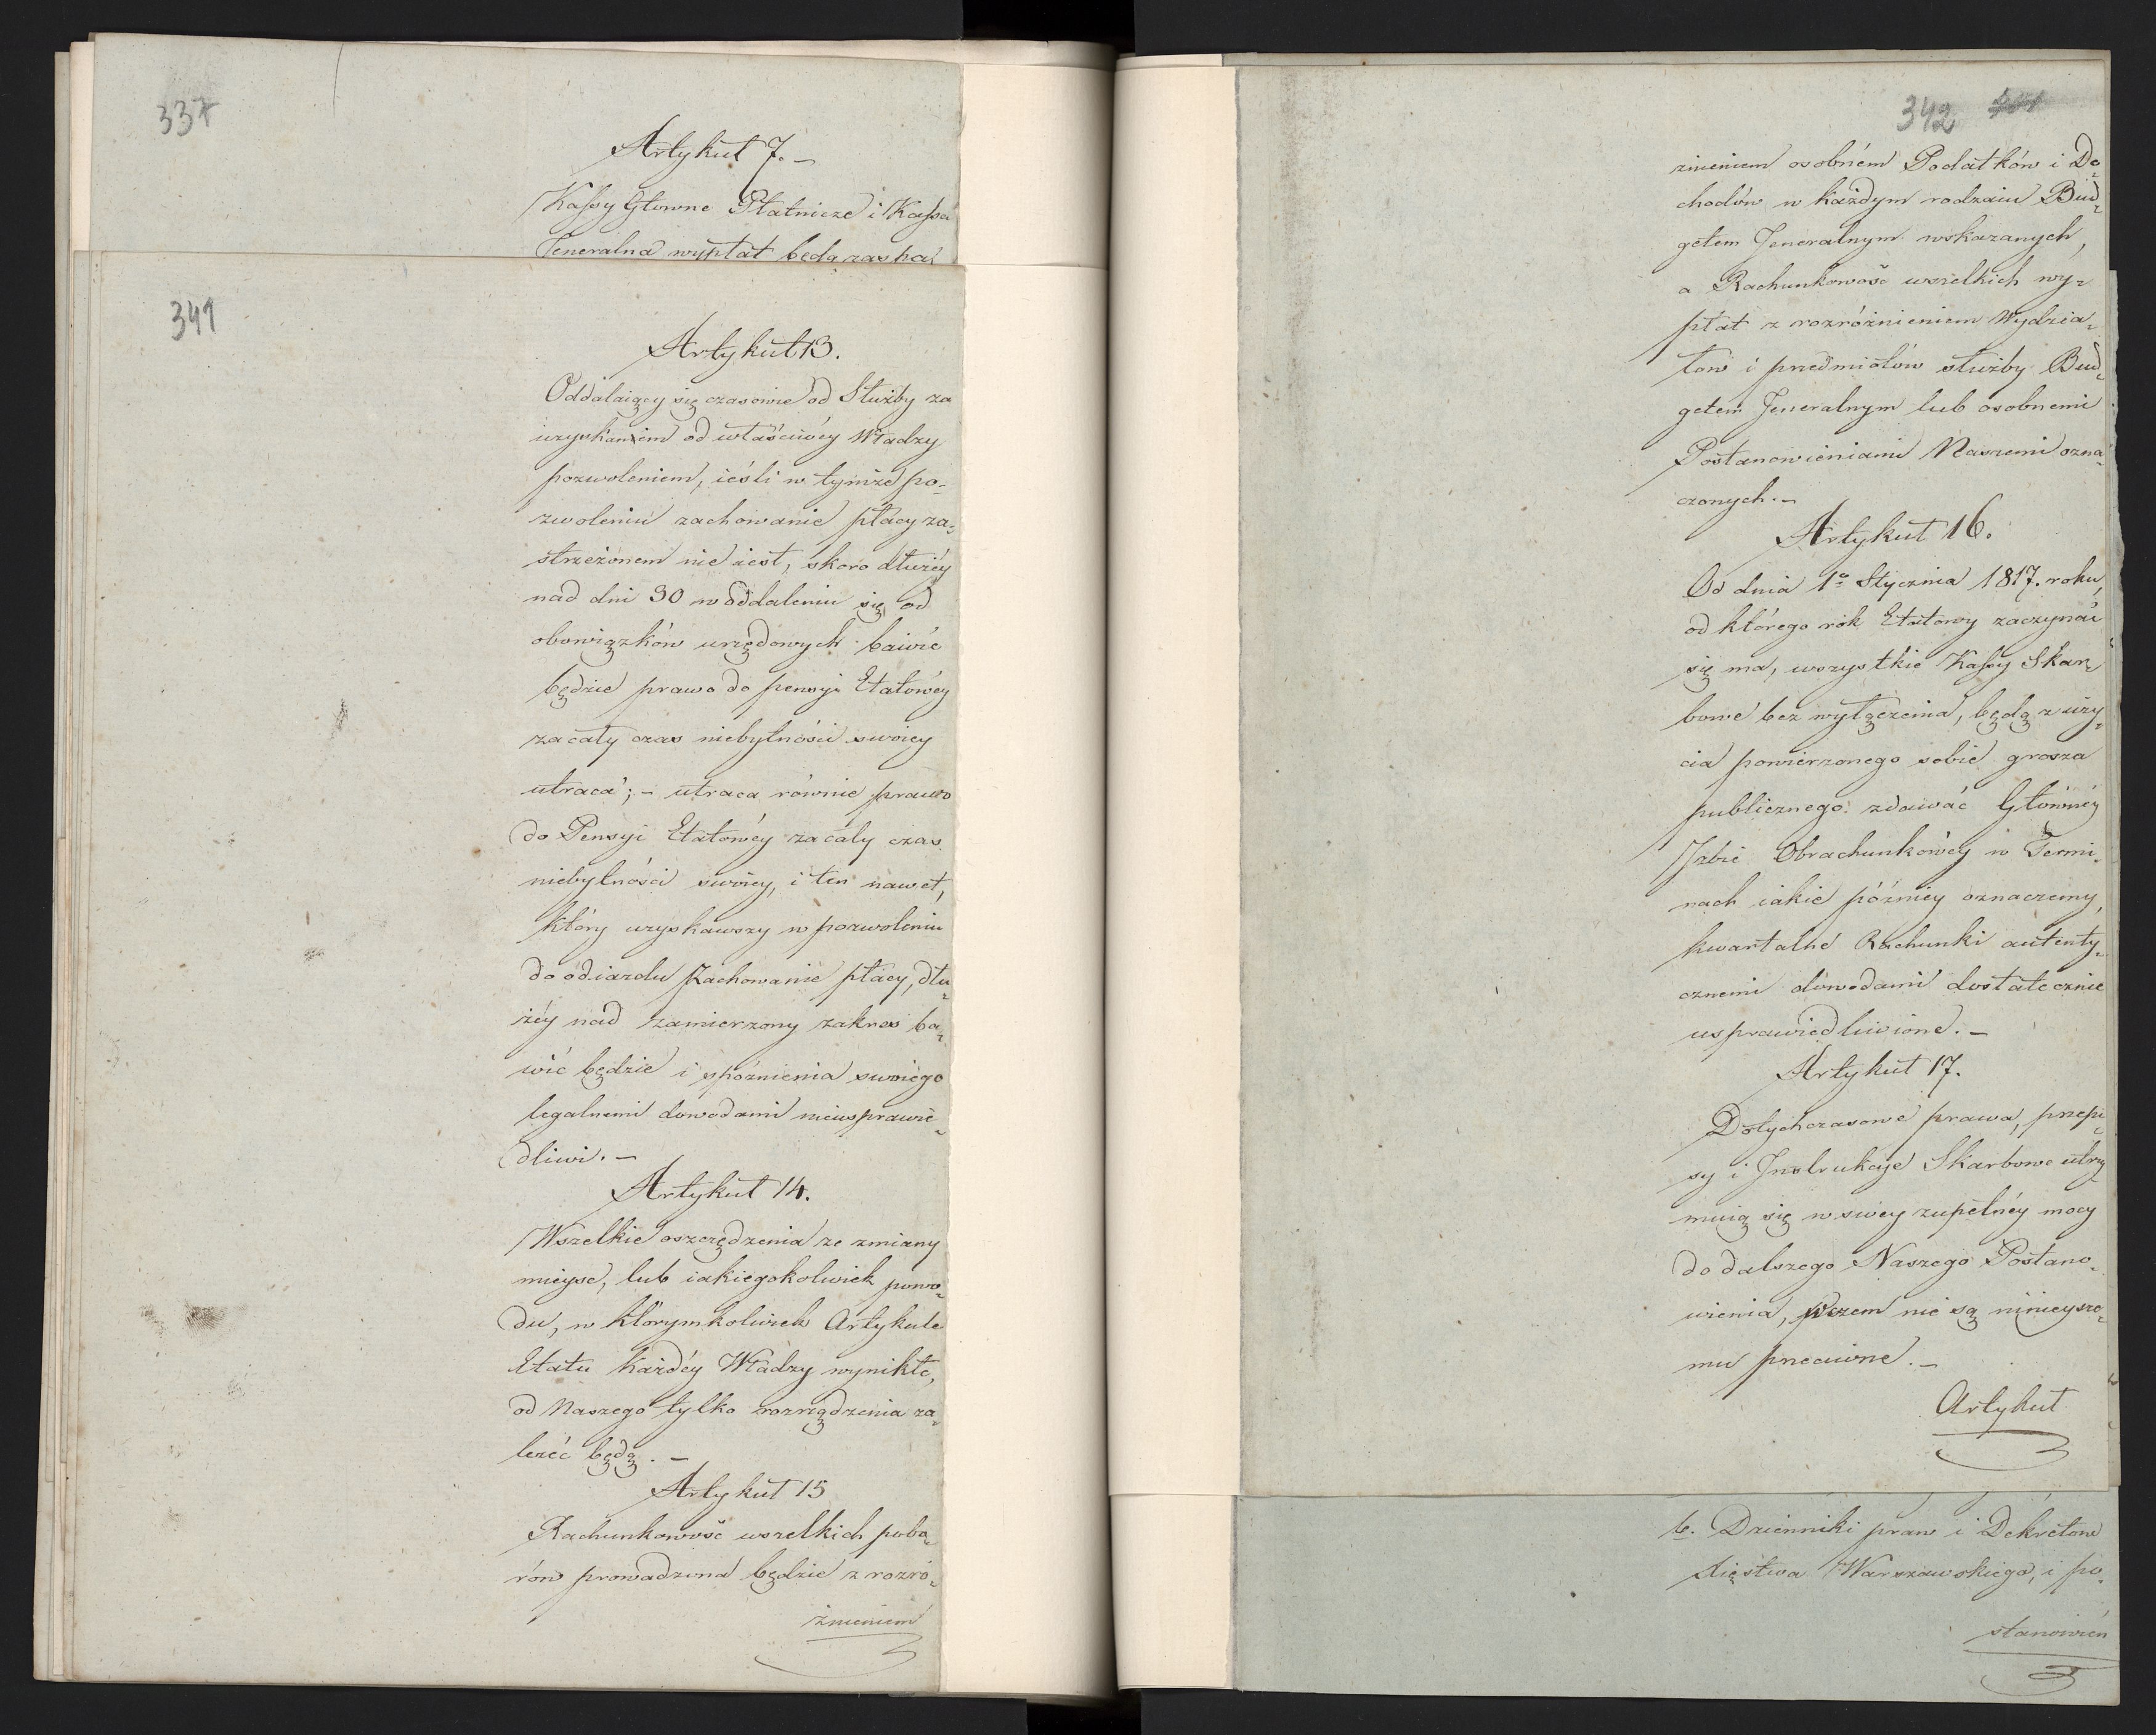 337
Artykuł 7. –
Kassy Główne Płatnicze i Kassa
Jeneralna wypłat będą
341
Artykuł 13.
Oddalaiący się czasowie od Służby za
uzyskaniem od właściwéy Władzy
pozwoleniem, ieśli w tymże po-
zwoleniu zachowanie płacy za-
strzeżonem nie iest, skoro dłużéy
nad dni 30 w oddaleniu się od
obowiązków urzędowych bawić
będzie prawo do pensyi Etatowéy
za cały czas niebytności swoiey
utraca; – utraca równie prawo
do Pensyi Etatowéy za cały czas
niebytności swoiey, i ten nawet,
który uzyskawszy w pozwoleniu
do odiazdu zachowanie płacy, dłu-
żéy nad zamierzony zakres ba-
wić będzie i spóźnienia swoiego
legalnemi dowodami nieusprawie-
dliwi. –
Artykuł 14.
Wszelkie oszczędzenia ze zmiany
mieysc, lub iakiegokolwiek powo-
du, w którymkolwiek Artykule
Etatu każdéy Władzy wynikłe,
od Naszego tylko rozrządzenia za-
leżéć będą. –
Artykuł 15
Rachunkowość wszelkich pobo-
rów prowadzona będzie z rozró-
żnieniem
342
żnieniem osobném Podatków i Do-
chodów w każdym rodzaiu Bud-
getem Jeneralnym wskazanych,
a Rachunkowość wszelkich wy-
płat z rozróżnieniem Wydzia-
łów i przedmiotów służby Bud-
getem Jeneralnym lub osobnemi
Postanowieniami Naszemi ozna-
czonych. –
Artykuł 16.
Od dnia 1o Stycznia 1817. roku,
od którego rok Etatowy zaczynać
się ma, wszystkie Kassy Skar-
bowe bez wyłączenia, będą z uży-
cia powierzonego sobie grosza
publicznego zdawać Główney
Izbie Obrachunkowéy w Termi-
nach iakie późniéy oznaczemy,
kwartalne Rachunki autenty-
cznemi dowodami dostatecznie
usprawiedliwione. –
Artykuł 17.
Dotychczasowe prawa, przepi-
sy i Instrukcye Skarbowe utrzy-
muią się w swéy zupełnéy mocy
do dalszego Naszego Postano-
wienia, w czem nie są ninieysze-
mu przeciwne. –
Artykuł
b. Dzienniki praw i Dekretów
Xięstwa Warszawskiego, i po-
stanowień